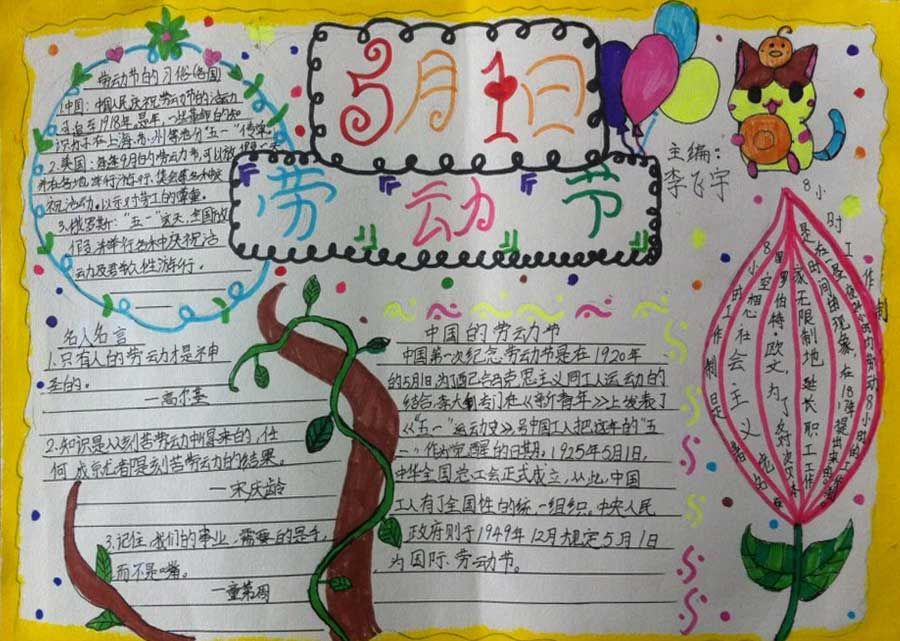 5月1日
劳动节
主编：
李飞宇
劳动节的习俗(各国)
1.中国：中国人民庆祝劳动节的活动
可追至1918年.是年.一些革命的知
识分子在上海.苏.州等地介"五一"传单.
2.美国：每年9月的劳动节，可以放假一天
并在各地，举行游行、集会等各种庆
祝活动.以示对劳工的尊重。
3.俄罗斯："五一"这天.全国放
假.并举行各种庆祝活
动及群众性游行。
名人名言
1.只有人的劳动才是神
圣的。
—高尔基
2.知识是从刻苦劳动中得来的，任
何成就者是刻苦劳动的结果。
—宋庆龄
3.记住，我们的事业，需要的是手，
而不是嘴。
—童第周
中国的劳动节
中国第一次纪念劳动节是在1920年
的5月1日.为了配合马克思主义同工人运动的
结合.李大钊专门在《新青年》上发表了
《"五一"运动史》.号中国工人把这年的"五
一"作为觉醒的日期。1925年5月1日，
中华全国总工会正式成立，从此，中国
工人有了全国性的统一组织.中央人民
政府则于1949年12月规定5月1日
为国际劳动节。
8小时工作制
8小时工作制是
空想社会主义者
罗伯特·欧文，为了反对资
家无限制地延长职工工作
时间的现象，在18
是在一昼夜24小时内劳动8小时的工作